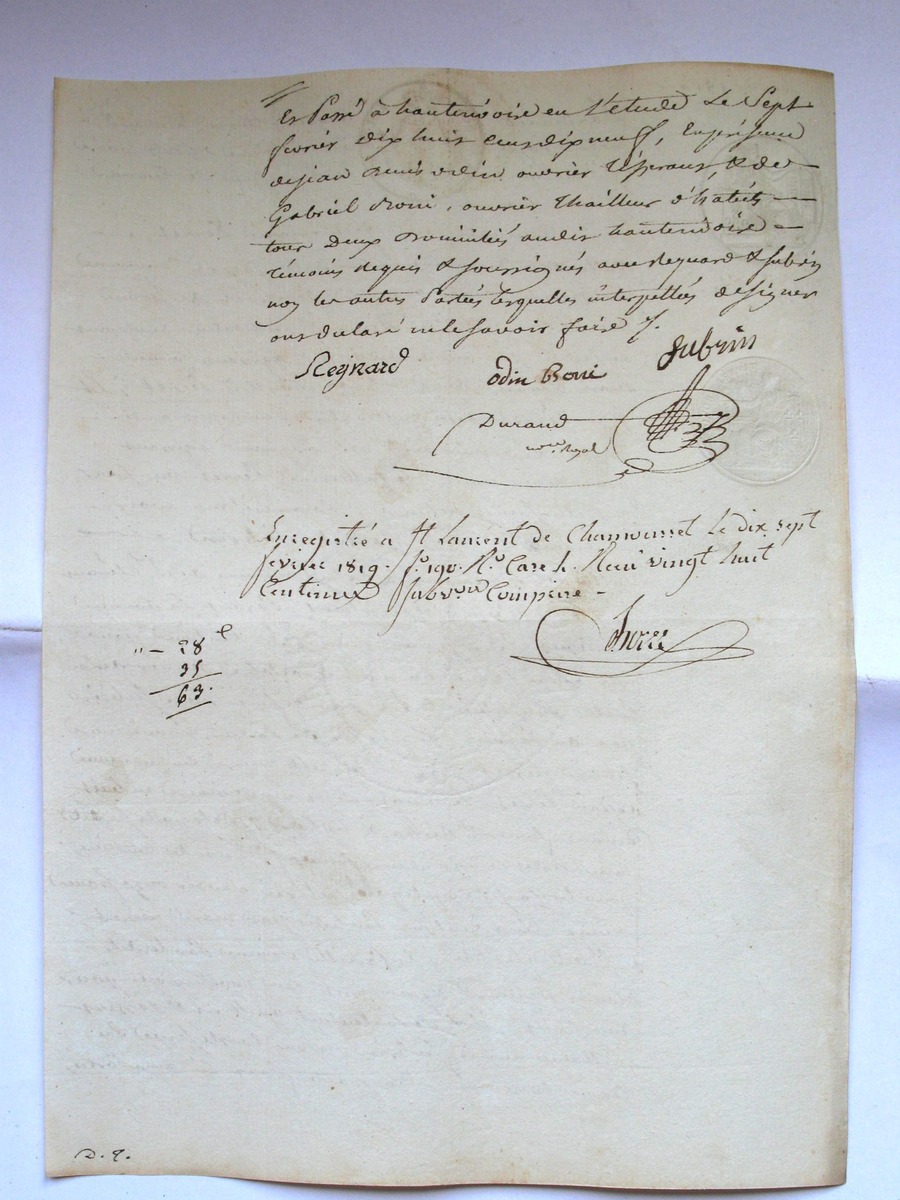 Et Passé à hauterivoire en l'etude Le Sept
fevrier dix huit cens dix neuf, En présence
de jean Denis odin ouvrier & de
Gabriel Boni, ouvrier thailleur d'habits
tous Deux Domiciliés audit hauterivoire
témoins requis & soussignés avec Regnard & subrin
non les autres Parties lesquelles interpellées de signer
ont declaré ne le savoir faire /.
Regnard odin Boni subrin
Durand
no.re Royal
Enregistré a St Laurent de Chamousset le dix sept
fevrier 1819. fo. 190. Ro. Case 4. Reçu vingt huit
Centimes subv.on Comprise
28 c
35
63.